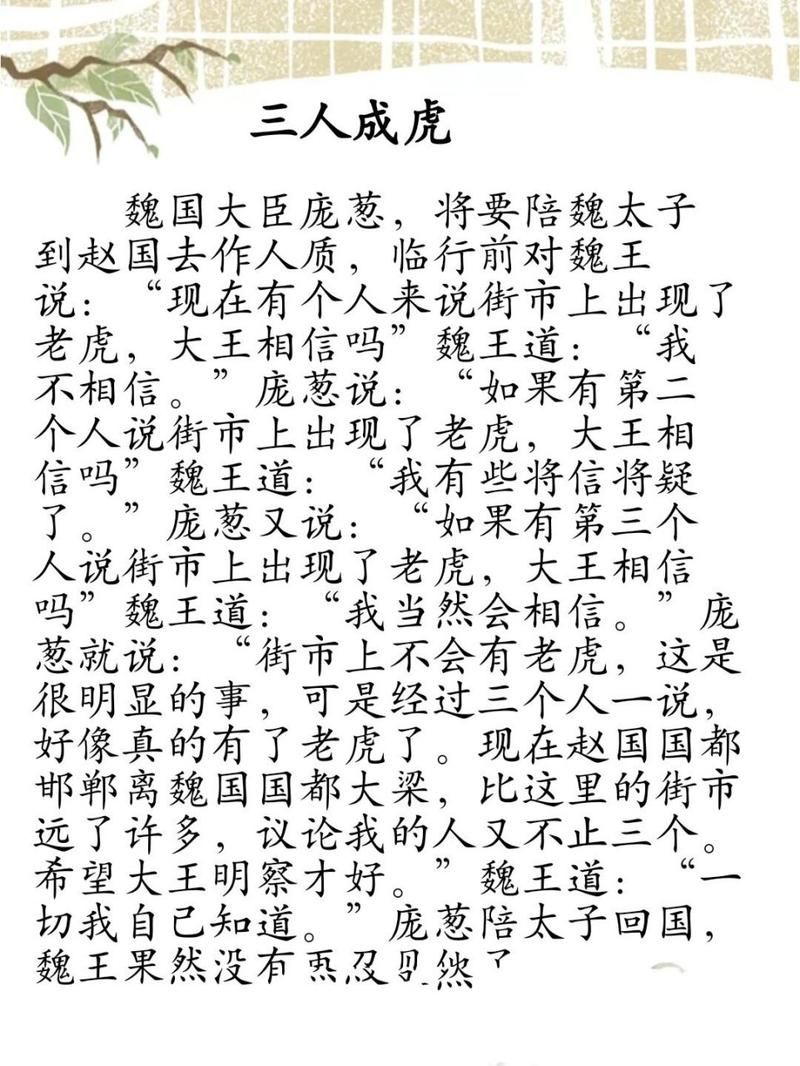 三人成虎
魏国大臣庞葱，将要陪魏太子
到赵国去作人质，临行前对魏王
说：“现在有个人来说街市上出现了
老虎，大王相信吗”魏王道：“我
不相信。”庞葱说：“如果有第二
个人说街市上出现了老虎，大王相
信吗”魏王道：“我有些将信将疑
了。”庞葱又说：“如果有第三个
人说街市上出现了老虎，大王相信
吗”魏王道：“我当然会相信。”庞
葱就说：“街市上不会有老虎，这是
很明显的事，可是经过三个人一说，
好像真的有了老虎了。现在赵国国都
邯郸离魏国国都大梁，比这里的街市
远了许多，议论我的人又不止三个。
希望大王明察才好。”魏王道：“一
切我自己知道。”庞葱陪太子回国，
魏王果然没有